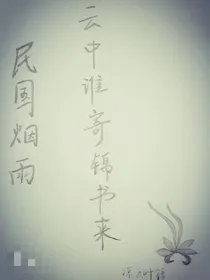 云中谁寄锦书来
民国烟雨